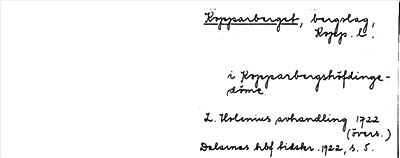 Kopparberget, bergslag,
Kopp. l.
i Kopparbergshöfdinge-
döme
L. Holenius avhandling 1722
(övers.)
Dalarnas hbf tidskr. 1922, s. 5.